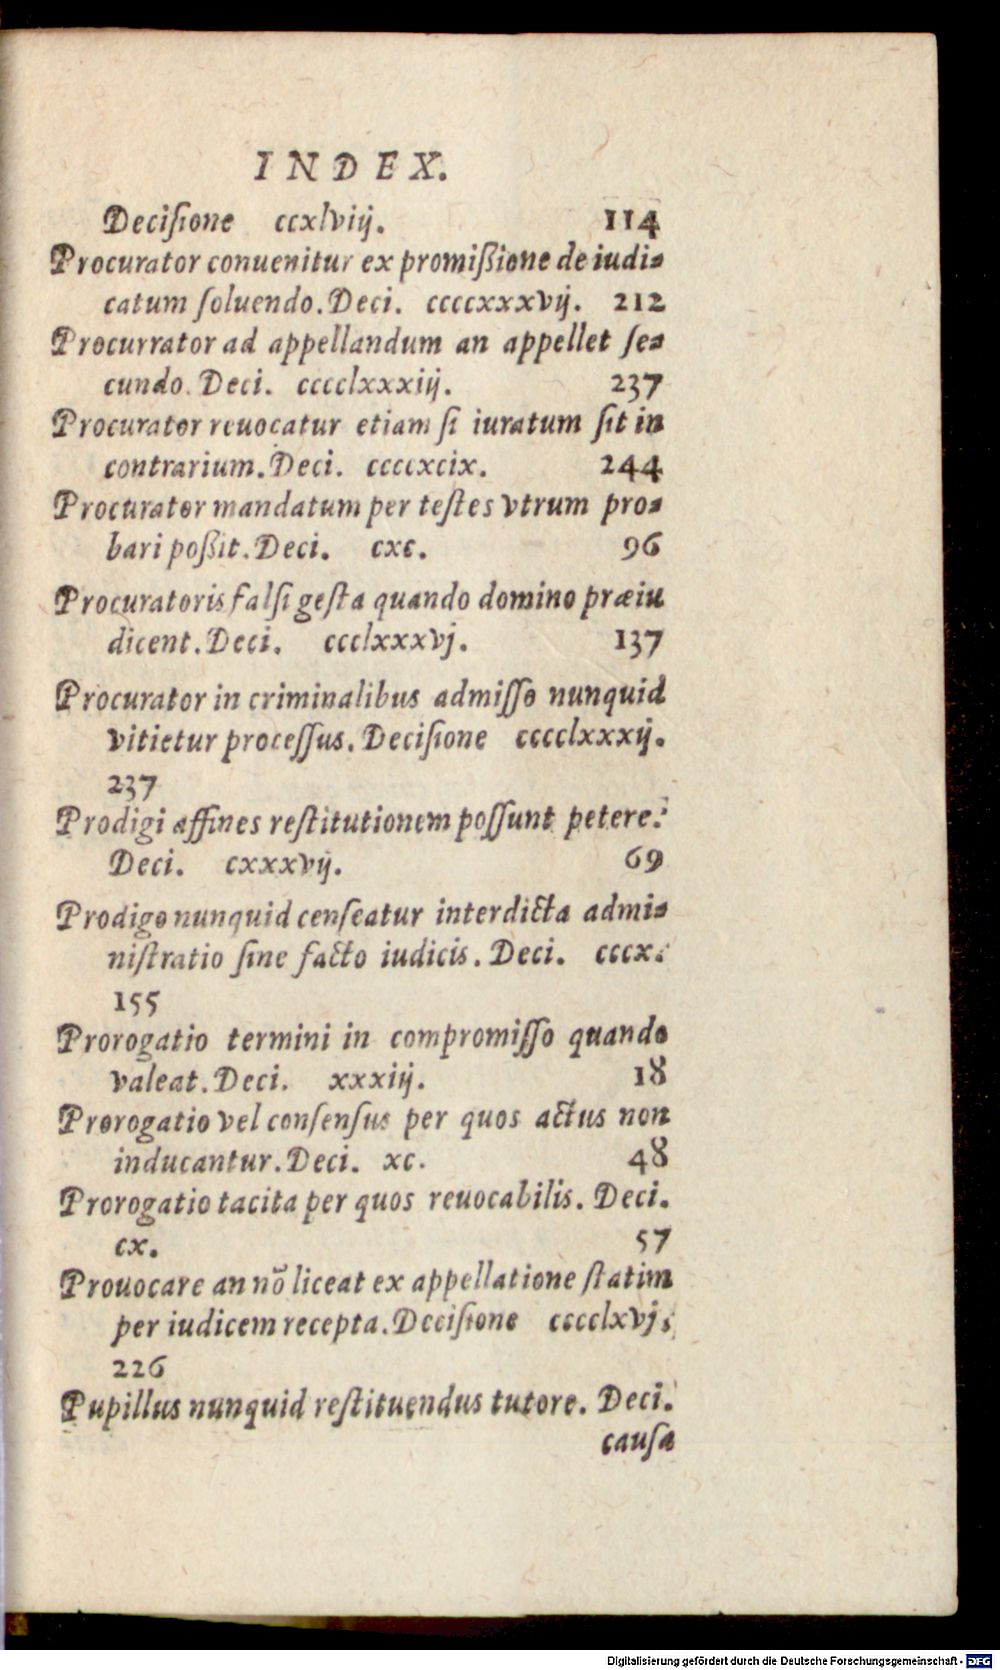 INDEX.
Deciſione ccxlviij. 114
Procurator conuenitur ex promißione de iudi-
catum ſoluendo. Deci. ccccxxxvij. 212
Procurrator ad appellandum an appellet ſe-
cundo. Deci. cccclxxxiij. 237
Procurator reuocatur etiam ſi iuratum ſit in
contrarium. Deci. ccccxcix. 244
Procurator mandatum per teſtes vtrum pro-
bari poßit. Deci. cxc. 96
Procuratoris falſi geſta quando domino præiu
dicent. Deci. ccclxxxvj. 137
Procurator in criminalibus admiſſo nunquid
vitietur proceſſus. Deciſione cccclxxxij.
237
Prodigi affines reſtitutionem poſſunt petere.
Deci. cxxxvij. 69
Prodigo nunquid cenſeatur interdicta admi-
niſtratio ſine facto iudicis. Deci. cccx.
155
Prorogatio termini in compromiſſo quando
valeat. Deci. xxxiij. 18
Prorogatio vel conſenſus per quos actus non
inducantur. Deci. xc. 48
Prorogatio tacita per quos reuocabilis. Deci.
cx. 57
Prouocare an nō liceat ex appellatione ſtatim
per iudicem recepta. Deciſione cccclxvj.
226
Pupillus nunquid reſtituendus tutore. Deci.
cauſa
Digitalisierung gefördert durch die Deutsche Forschungsgemeinschaft - DFG